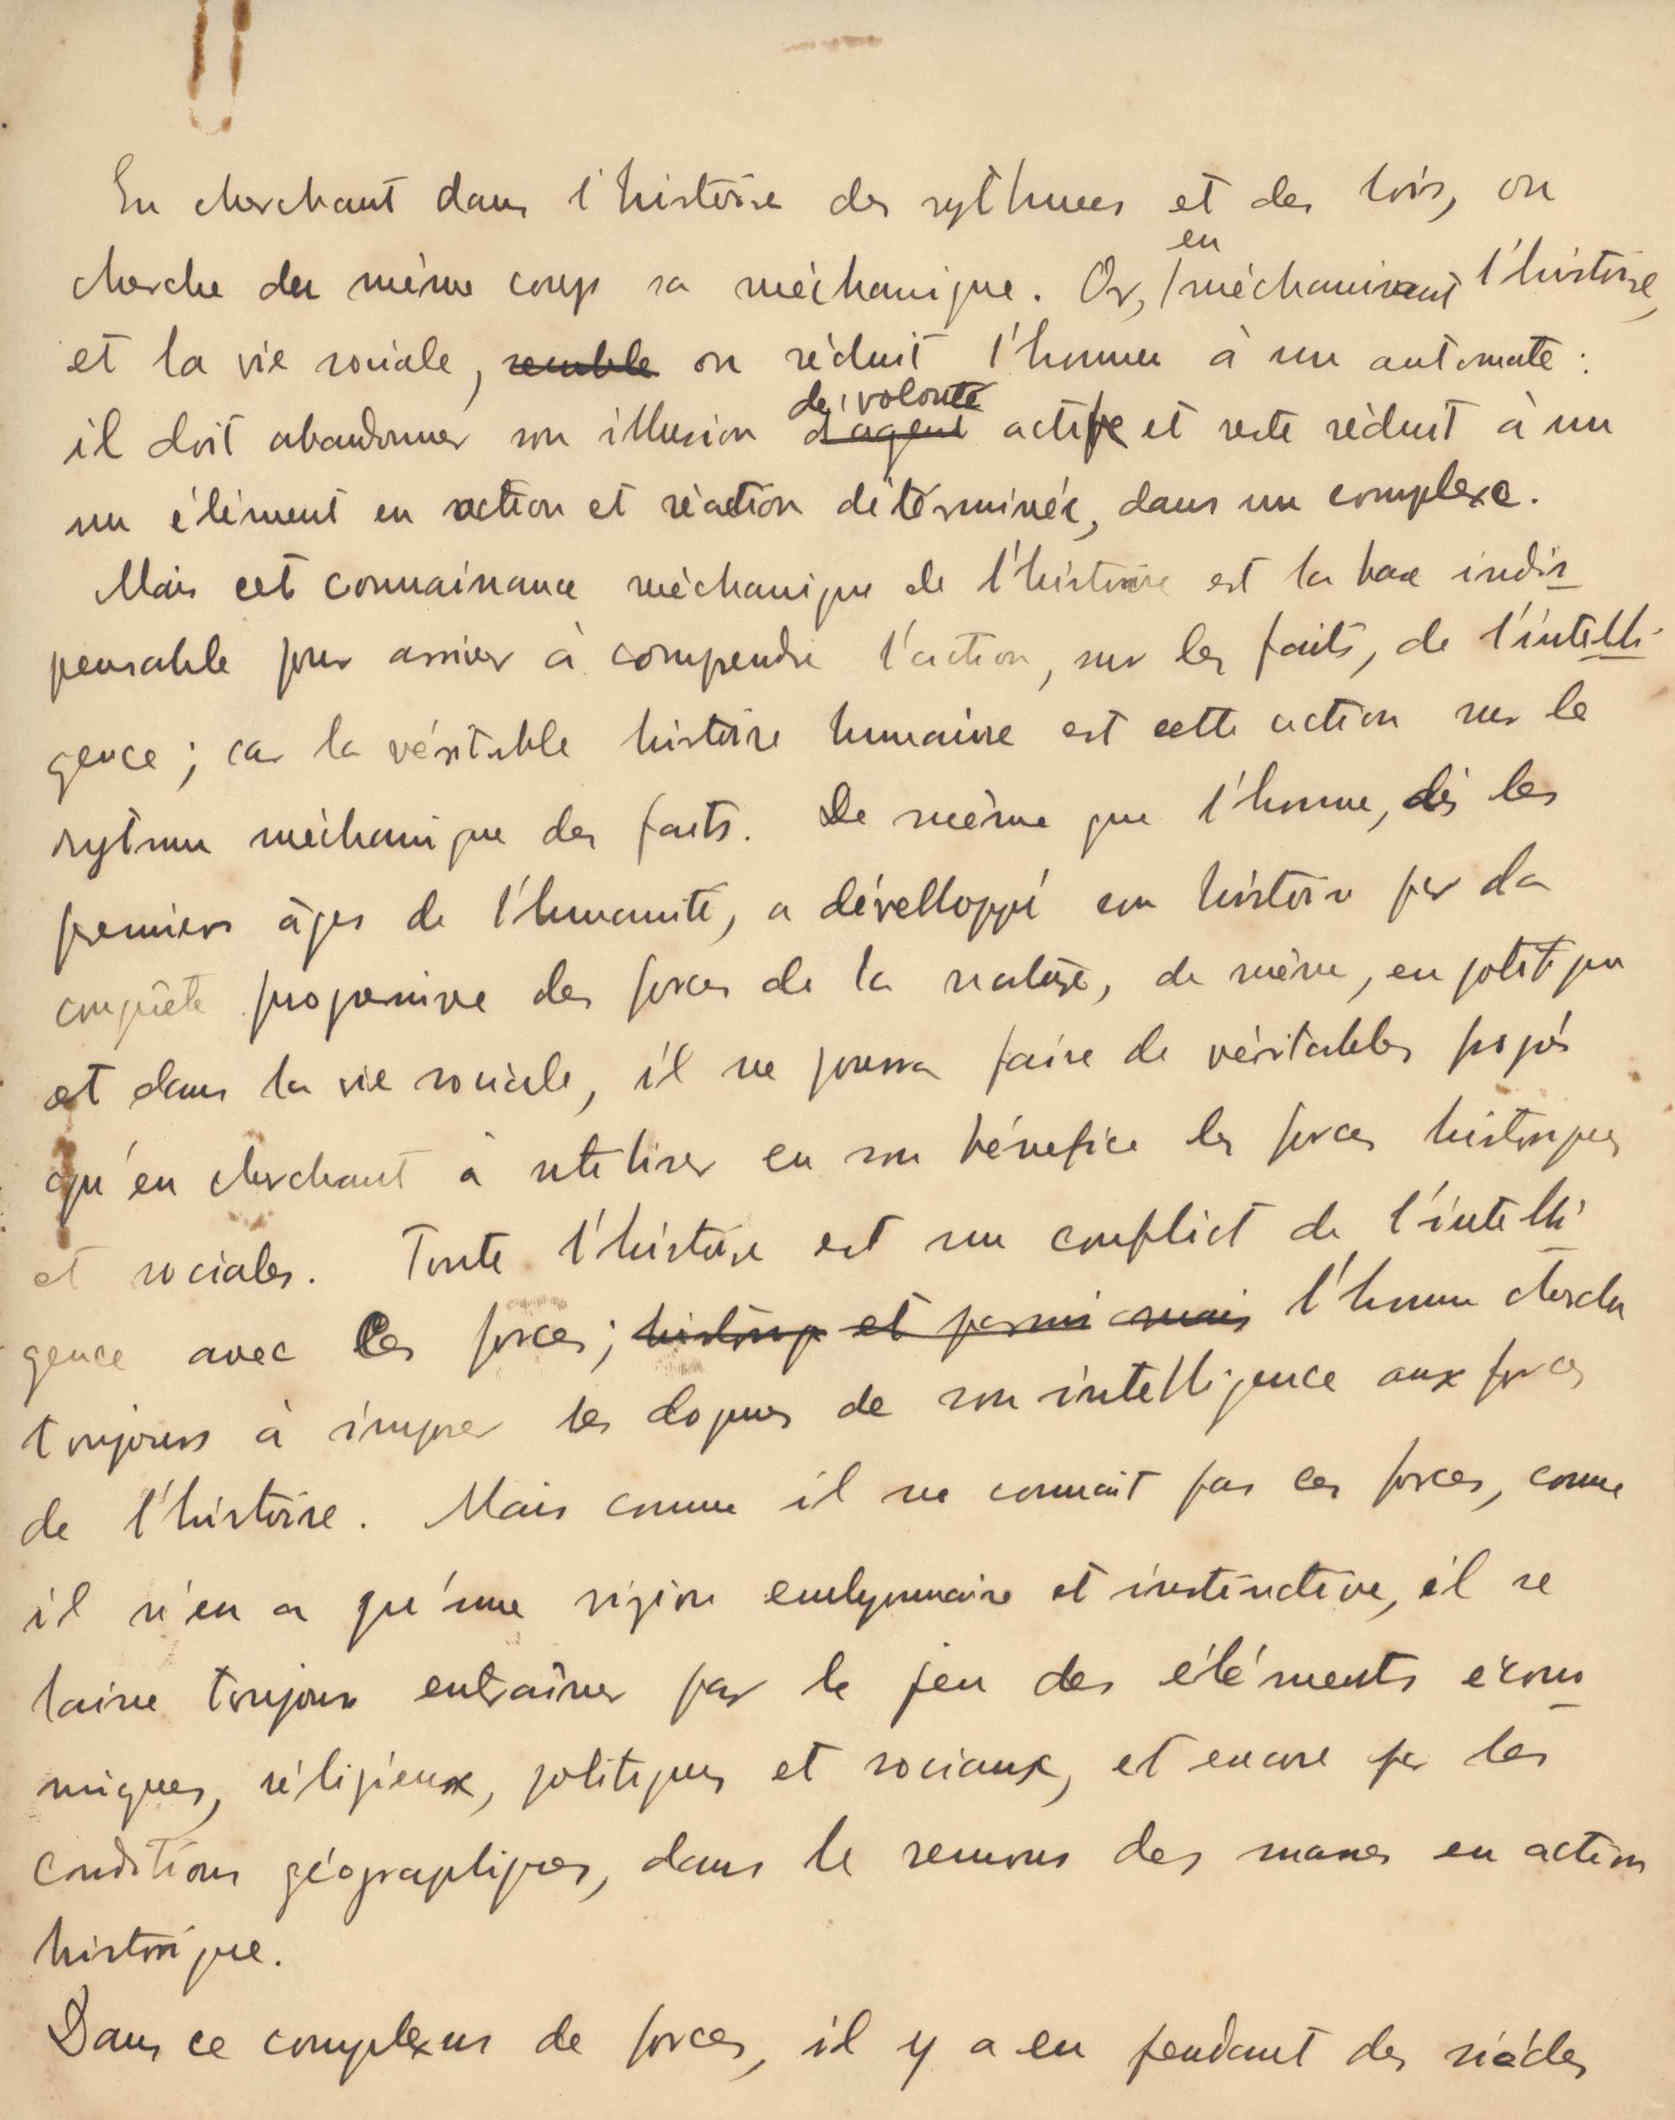 En cherchant dans l'histoire des rythmes et des lois, on
cherche du même coup sa méchanique. Or, en méchanisant l'histoire,
et la vie sociale, semble on réduit l'homme à un automate :
il doit abandonner son illusion d'agent de volonté active et reste réduit à un
un élément en action et réaction déterminée, dans un complexe.
Mais cet connaissance méchanique de l'histoire est la base indis
pensable pour arriver à comprendre l'action, sur les faits, de l'intelli-
gence ; car la véritable histoire humaine est cette action sur le
rytme méchanique des faits. De même que l'homme, dès les
premiers âges de l'humanité, a dévelloppé son histoire par la
conquête progressive des forces de la nature, de même, en politique
et dans la vie sociale, il ne pourra faire de véritables progrès
qu'en cherchant à utiliser en son bénefice les forces historiques
et sociales. Toute l'histoire est un conflict de l'intelli
gence avec les forces ; historiq et parmi mais l'homme cherche
toujours à imposer les dogmes de son intelligence aux forces
de l'histoire. Mais comme il ne connait pas ces forces, comme
il n'en a qu'une vision embryonnaire et instinctive, il se
laisse toujours entraîner par le jeu des éléments écono
miques, réligieux, politiques et sociaux, et encore par les
conditions géographiques, dans le remous des masses en action
historique.
Dans ce complexus de forces, il y a eu pendant des siècles